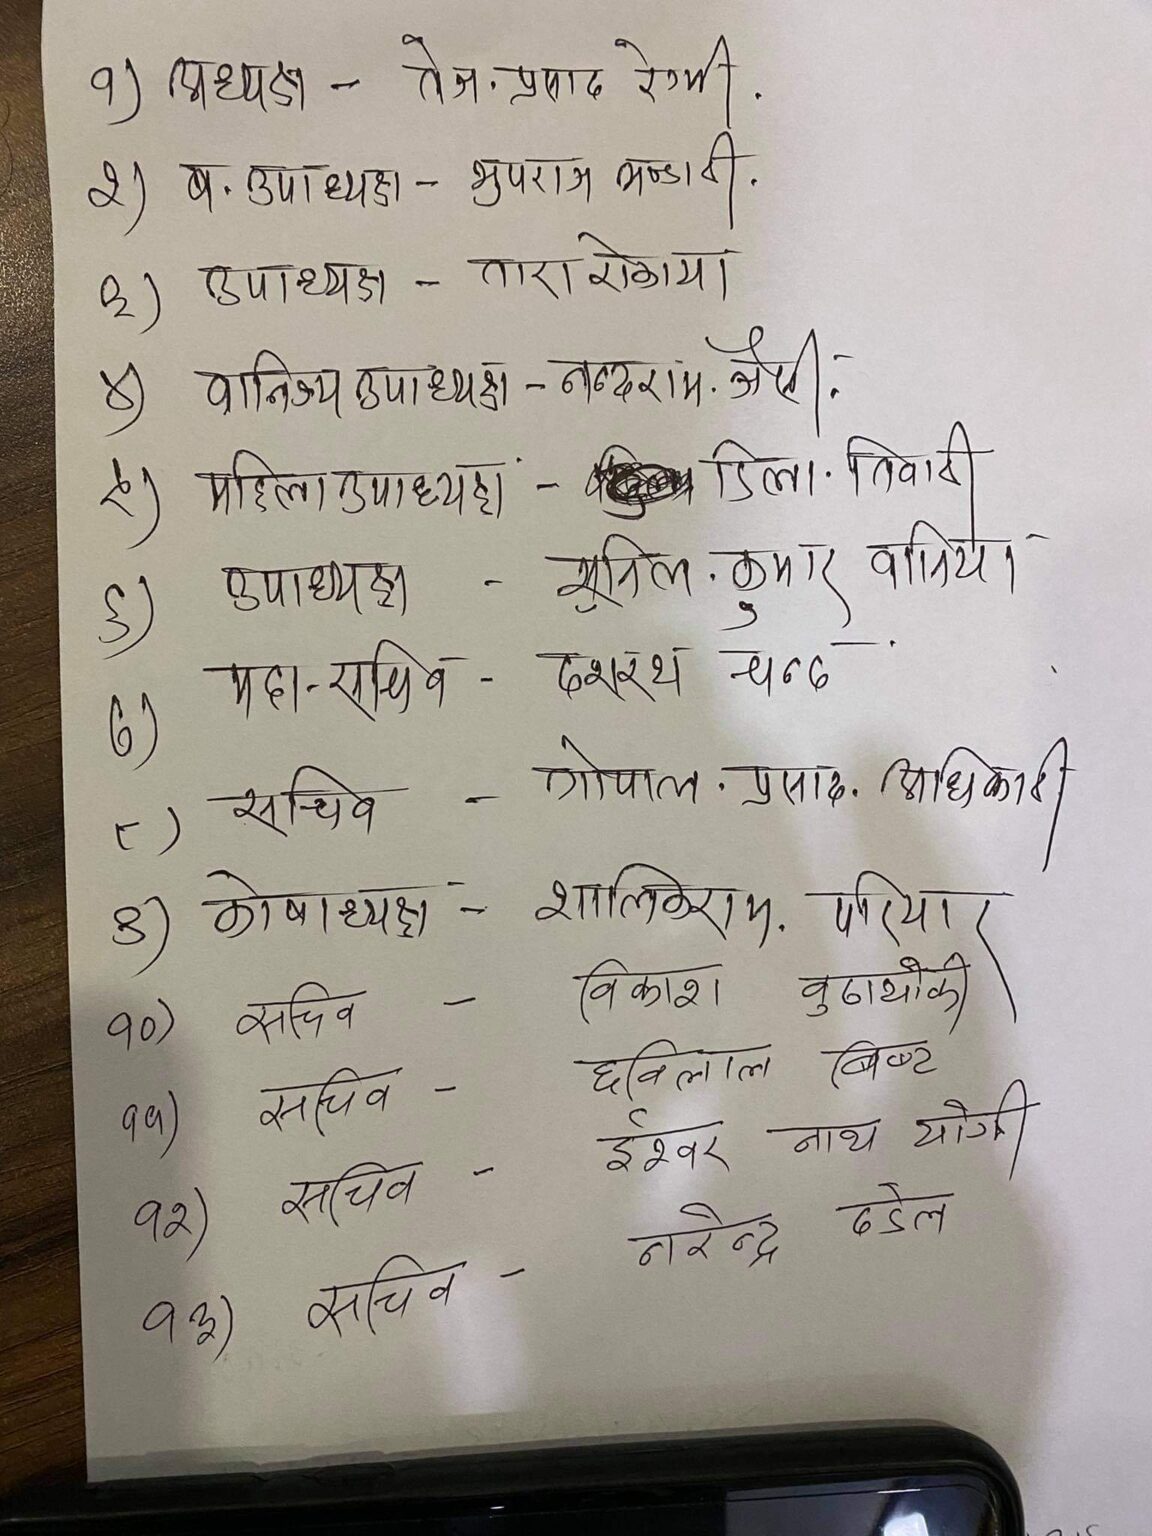 १) अध्यक्ष - तेज. प्रसाद रेग्मी.
२) ब. उपाध्यक्ष - भुपराज भण्डारी.
३) उपाध्यक्ष - तारा रोकाया
४) वानिज्य उपाध्यक्ष - नन्दराम. जैसी.
५) महिला उपाध्यक्ष - डिला. तिवारी
६) उपाध्यक्ष - सुनिल. कुमार वानिया
७) महा-सचिव - दशरथ चन्द
८) सचिव - गोपाल. प्रसाद. अधिकारी
९) कोषाध्यक्ष - शालिकराम. परियार
१०) सचिव - विकाश वुढाथोकी
११) सचिव - छविलाल बिष्ट
१२) सचिव - ईश्वर नाथ योगी
१३) सचिव - नरेन्द्र डडेल